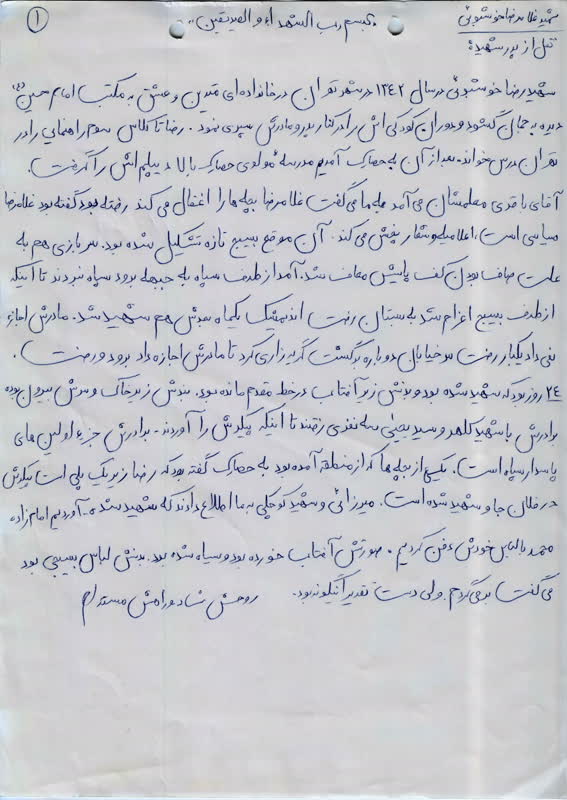 شهید غلامرضا خوشنوئی
«بسم رب الشهداء و الصدیقین»
۱
نقل از پدر شهید:
شهید رضا خوشنوئی در سال ۱۳۴۲ در شهر تهران در خانواده‌ای متدین و عشق به مکتب امام حسین (ع)
دیده به جهان گشود و دوران کودکی اش را در کنار پدر و مادرش سپری نمود. رضا تا کلاس سوم راهنمایی را در
تهران درس خواند. بعد از آن به حصارک آمدیم مدرسه مولوی حصارک بالا دیپلمش را گرفت.
آقای باقدی معلمشان می آمد به ما می گفت غلامرضا بچه ها را اغفال می کند رفته بود گفته بود غلامرضا
سیاسی است، اعلامیه و شعار پخش می کند. آن موقع بسیج تازه تشکیل شده بود. سربازی هم به
علت صاف بودن کف پایش معاف شد. آمد از طرف سپاه به جبهه برود سپاه نبردند تا اینکه
از طرف بسیج اعزام شد به بستان رفت اندیمشک یکماه بعدش هم شهید شد. مادرش اجازه
نمی داد یکبار رفت سر خیابان دوباره برگشت گریه زاری کرد تا مادرش اجازه داد برود و رفت.
۲۴ روز بود که شهید شده بود و بدنش زیر آفتاب در خط مقدم مانده بود. بدنش زیر خاک و سرش بیرون بوده
برادرش با شهید کلهر و سید یحیی سه نفری رفتند تا اینکه پیکرش را آوردند. برادرش جزء اولین های
پاسدار سپاه است). یکی از بچه ها که از منطقه آمده بود به حصارک گفته بود که رضا زیر یک پلی است پیکرش
در فلان جا و شهید شده است. میرزائی و شهید کوچکی به ما اطلاع دادند که شهید شده. آوردیم امام زاده
محمد با لباس خودش دفن کردیم. صورتش آفتاب خورده بود و سیاه شده بود. بدنش لباس بسیجی بود
می گفت برمی گردم ولی دست تقدیر اینگونه بود. روحش شاد و راهش مستدام